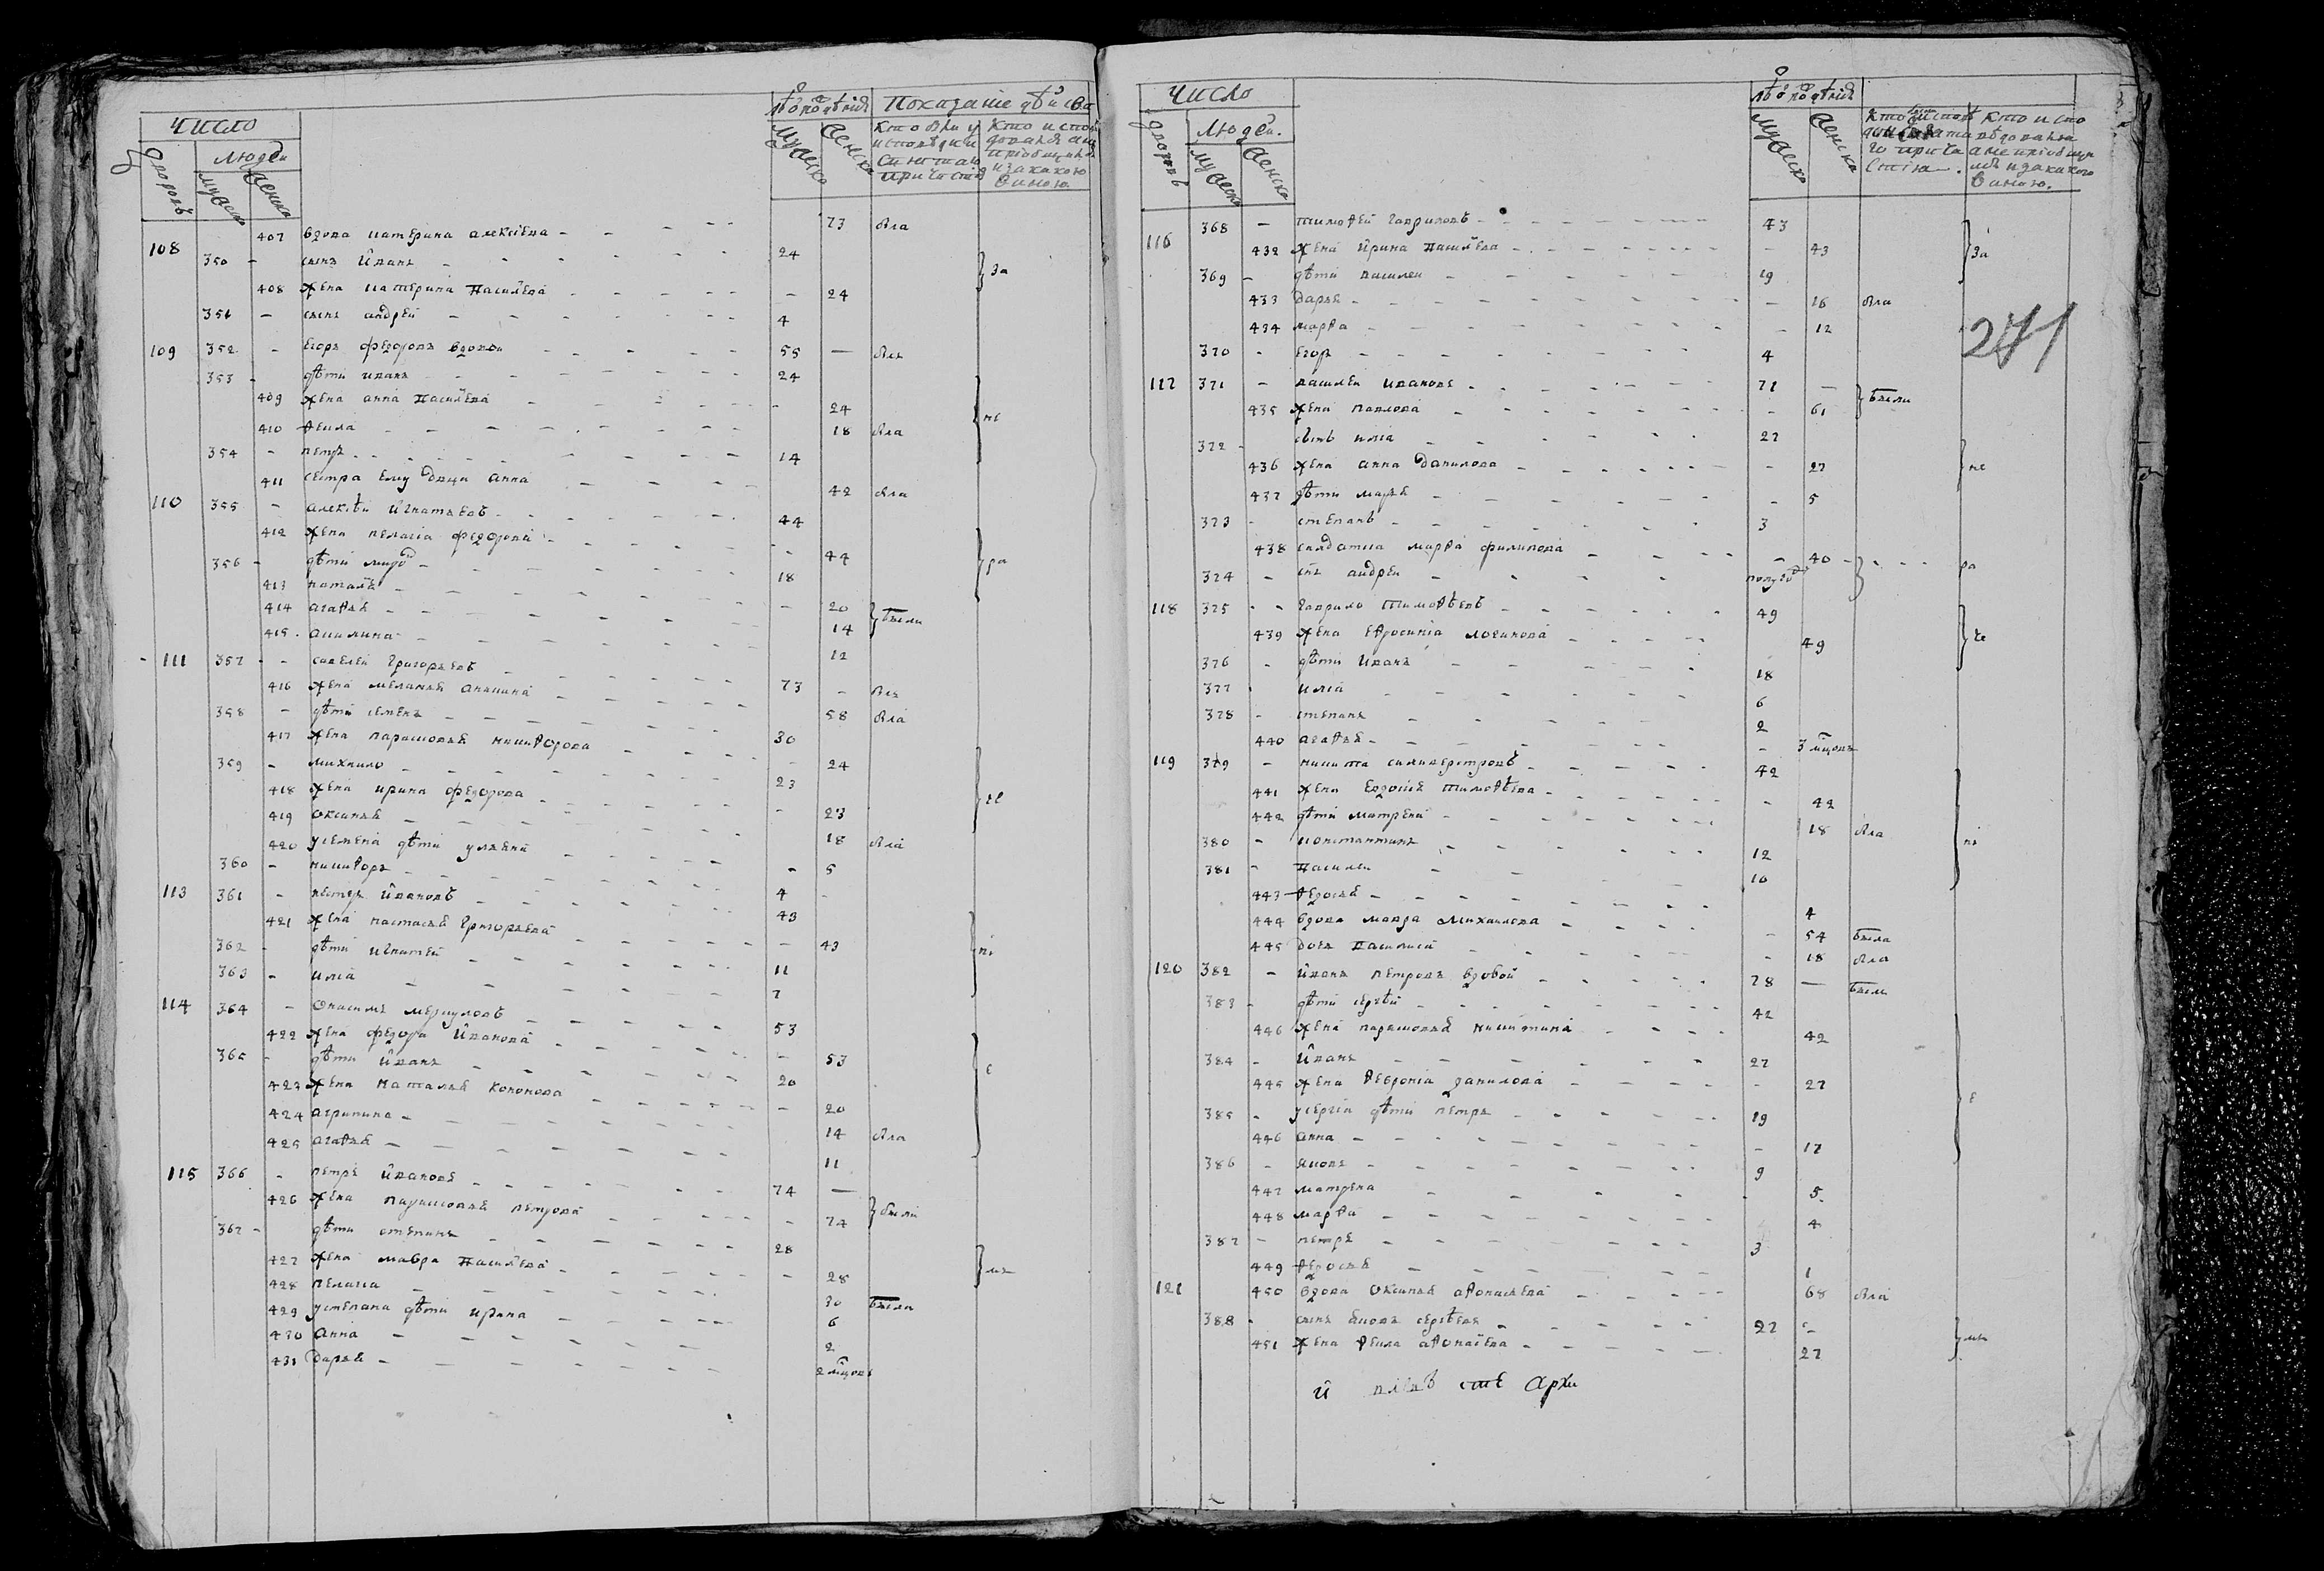 число
людеи
дворовъ
мужеска
женска
лѣто рожденія
мужеска
женска
Показаніе дѣиства
407 вдова катерина алексѣева - 73 была
108 350 - сынъ іванъ - 24
408 жена катерина васильева - 24
351 - сынъ андреи - 4
109 352 - егоръ федоровъ вдовои - 55 — былъ
353 - дѣти иванъ - 24
409 жена анна васильева - 24
410 фекла - 18 была
354 - петръ - 14
411 сестра ему девка анна - 42 была
110 355 - алексѣи игнатьевъ - 44
412 жена пелагіа федорова - 44
356 - дѣти - 18
413 наталья - 20
414 агафья - 14 были
415 акилина - 12
111 357 - савелеи григорьевъ - 73 - былъ
416 жена меланья ананина - 58 была
358 - дѣти семенъ - 30
417 жена парасковья никифорова - 24
359 - михаило - 23
418 жена ирина федорова - 23
419 оксинья - 18 была
420 усемена дѣти ульяна - 5
360 - никифоръ - 4
113 361 - петръ івановъ - 43
421 жена настасья григорьева - 43
362 - дѣти игнатеи - 11
363 - иліа - 7
114 364 - меркуловъ - 53
422 жена федора іванова - 53
365 - дѣти іванъ - 20
423 жена наталья кононова - 20
424 агрипина - 14 была
425 агафья - 11
115 366 - петръ івановъ - 74 —
426 жена парасковья петрова - 74 были
367 - дѣти степанъ - 28
427 жена мавра васильева - 28
428 пелагіа - 30 была
429 устепана дѣти ирина - 6
430 анна - 2
431 дарья - 2 мцовъ
число
людеи.
дворовъ
мужеска
женска
лѣто рожденія
мужеска
женска
116 368 - тимофеи гавриловъ - 43
432 жена ірина васильева - 43
369 - дѣти василеи - 19
433 дарья - 16 была
434 марфа - 12
271
370 - егоръ - 4
117 371 - василеи ивановъ - 71 —
435 жена павлова - 61 были
372 - сынъ иліа - 27
436 жена анна данилова - 27
437 дѣти марья - 5
373 - степанъ - 3
438 салдатка марфа филипова - 40
374 - снъ андреи - полуго
118 375 - гаврило тимофѣевъ - 49
439 жена ефросиніа логинова - 49
376 - дѣти іванъ - 18
377 - иліа - 6
378 - степанъ - 2
440 агафья - 3 мцовъ
119 379 - никита силиверстровъ - 42
441 жена евдокія тимофѣева - 42
442 дѣти матрена - 18 была
380 - константинъ - 12
381 - василеи - 10
443 федосья - 4
444 вдова мавра михаилова - 54 была
445 дочь василиса - 18 была
120 382 - іванъ петровъ вдовой - 78 — былъ
383 - дѣти сергѣи - 42
446 жена парасковья никитина - 42
384 - іванъ - 27
445 жена февроніа данилова - 27
385 - усергіа дѣти петръ - 19
446 анна - 17
386 - яковъ - 9
447 матрена - 5
448 марфа - 4
387 - петръ - 3
449 федосья - 1
121 450 вдова оксинья афонасьева - 68 была
388 - сынъ яковъ сергѣевъ - 27
451 жена фекла афонасева - 27